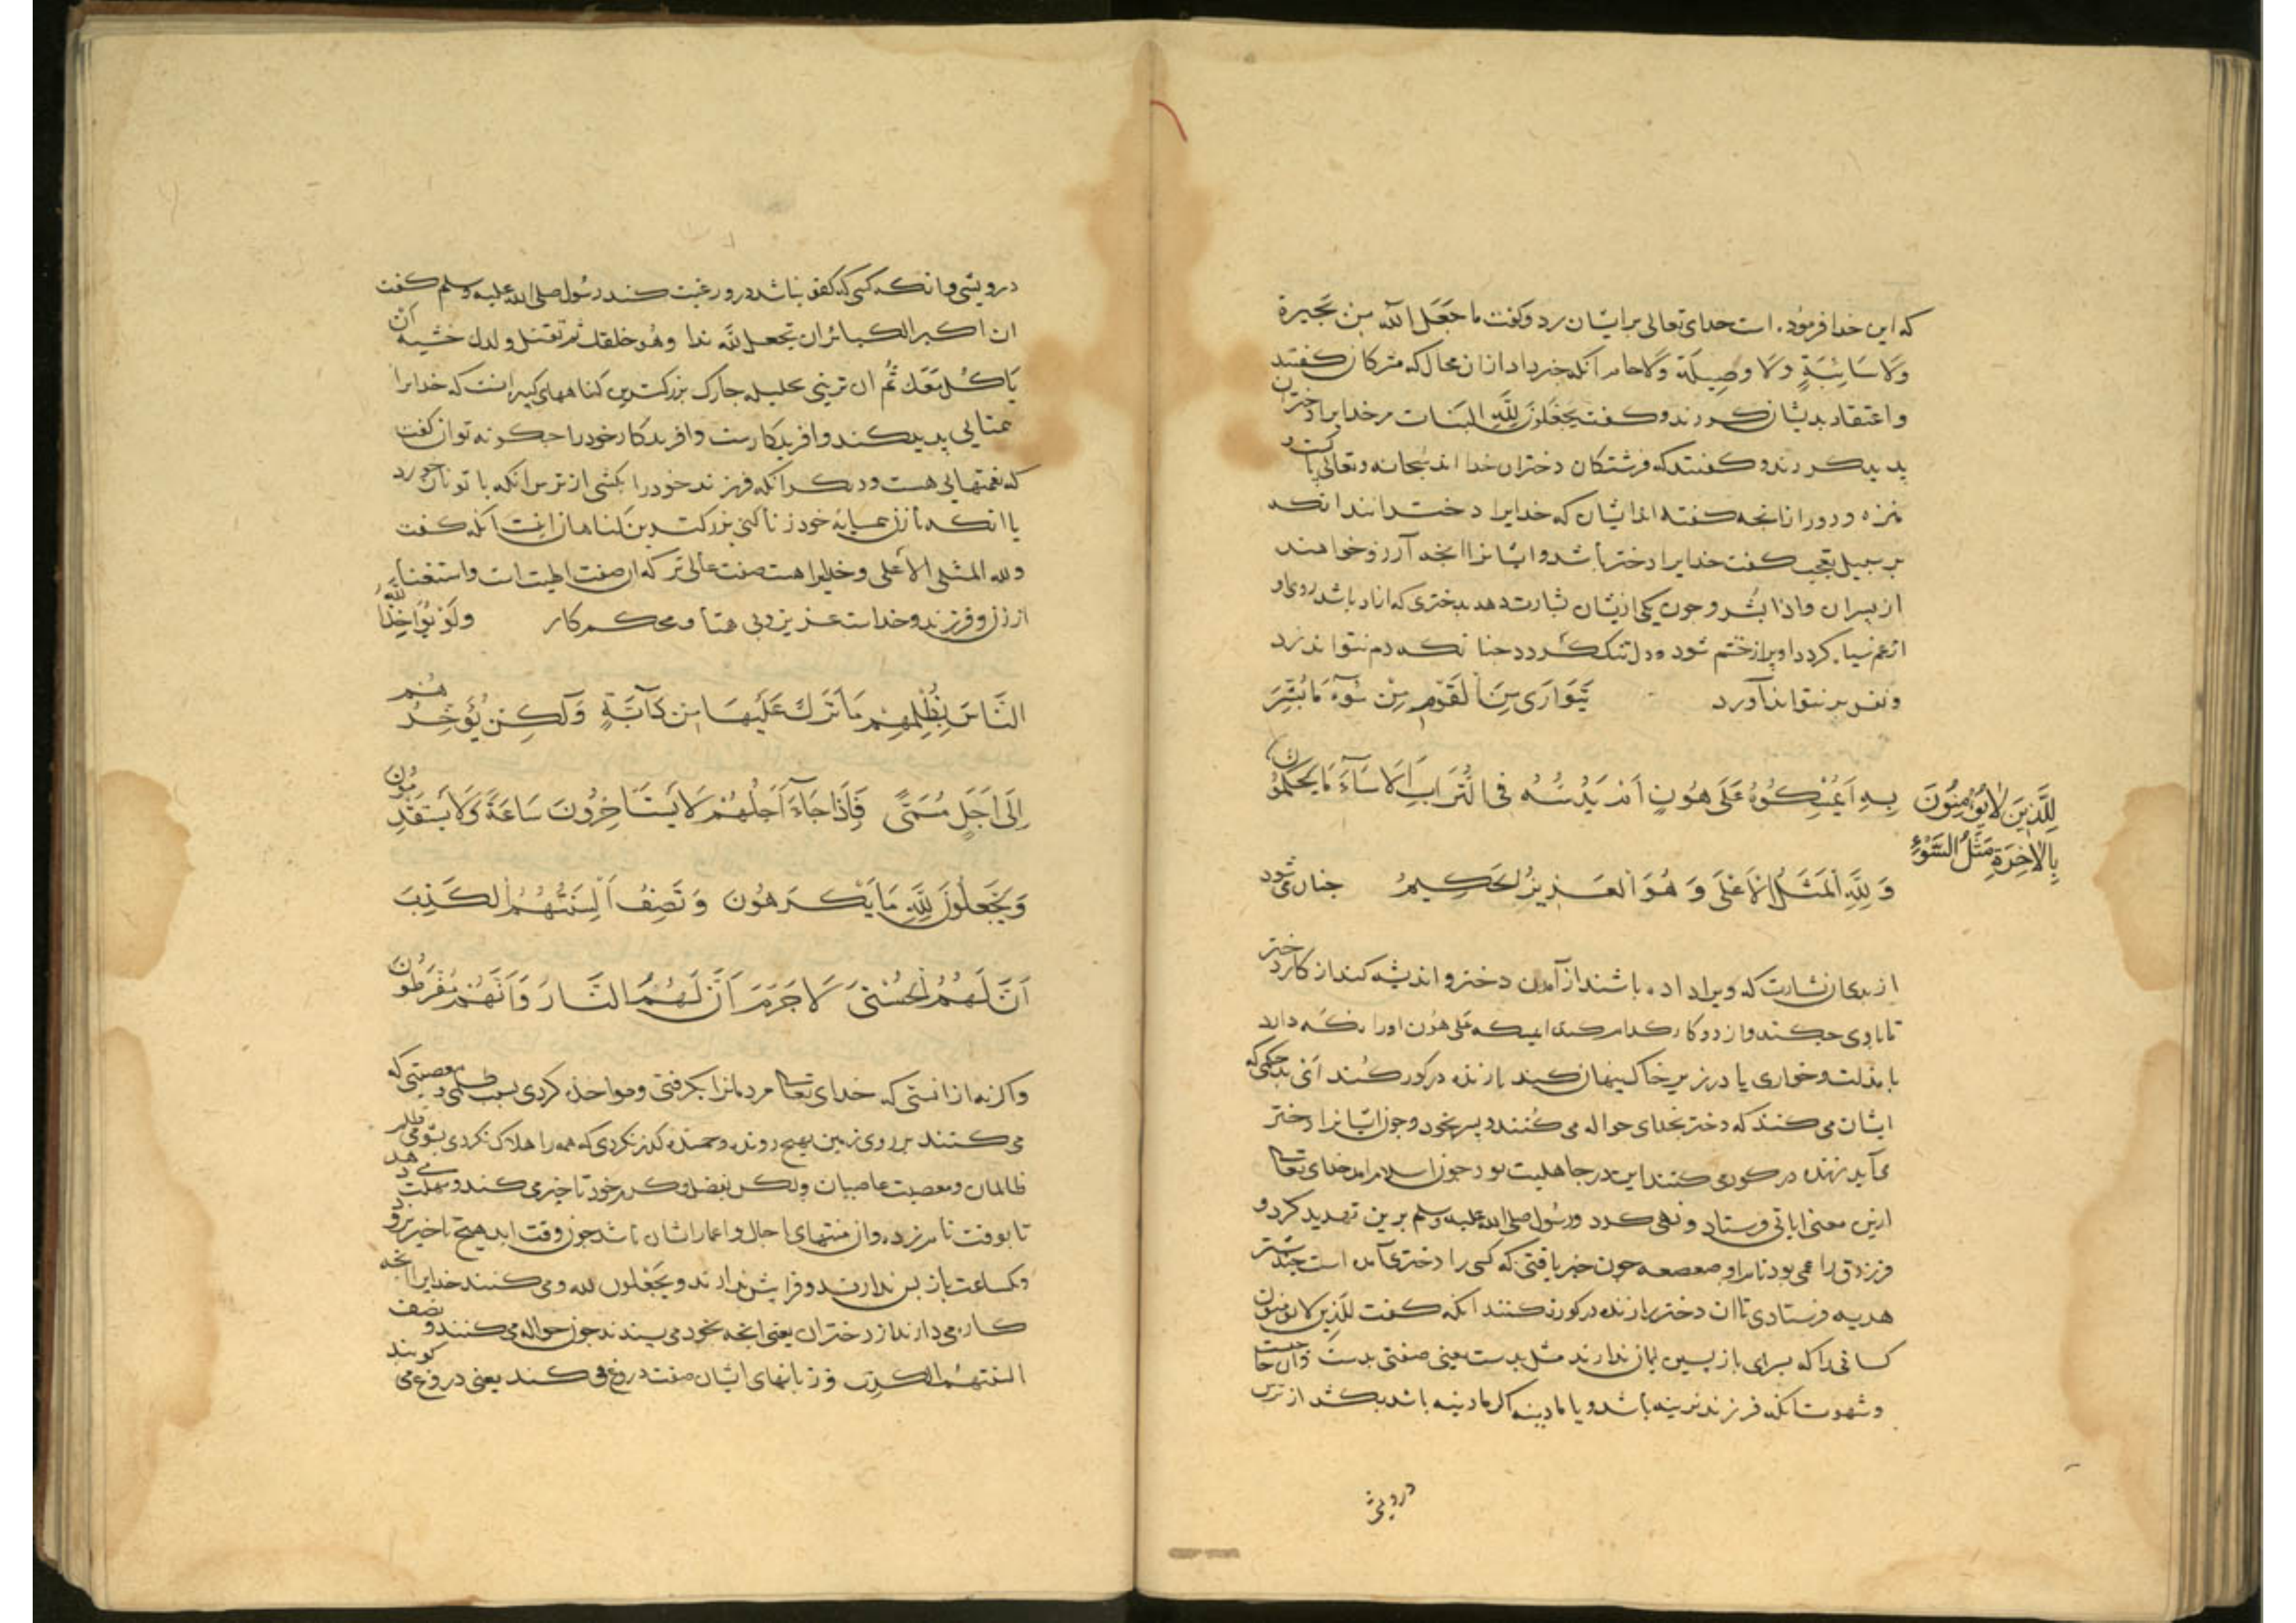 که این خدا فرموده است خدای تعالی بر ایشان رد و کفت ما جعل الله من بحیرة
ولا سائبة ولا وصیلة ولا حام آنکه خبر داد از ان محال که مشرکان کفتند
و اعتقاد بدیشان کردند و کفت یجعلون لله البنات مر خدایرا دختران
پدید کردند و کفتند که فرشتکان دختران خدا اند سبحانه و تعالی پاکست و
منزه و دور از انجه کفتند ایشان که خدایرا دخترانند انکه
بر سبیل تعجب کفت خدایرا دختر باشد و ایشانرا انجه آرزو خواهند
از پسران و اذا بشر و جون یکی ازیشان بشارت دهد بدختری که او زاد باشد روی او
از غم سیاه کردد او براز خشم شود و دل تنک کردد جنانکه دم نتواند زد
و نفس بر نتواند آورد یَتَوَارَى مِنَ الْقَوْمِ مِنْ سُوءِ مَا بُشِّرَ
بِهِ أَیُمْسِكُهُ عَلَى هُونٍ أَمْ یَدُسُّهُ فِی التُّرَابِ أَلَا سَاءَ مَا یَحْكُمُونَ
لِلَّذِینَ لَا یُؤْمِنُونَ
بِالْآخِرَةِ مَثَلُ السَّوْءِ
وَلِلَّهِ الْمَثَلُ الْأَعْلَى وَهُوَ الْعَزِیزُ الْحَكِیمُ جنان می شود
از بدی ان بشارت که ویرا داده باشند از آمدن دختر و اندیشه کند از کار دختر
تا با وی جکند و از دو کار کدام کند ایمسکه علی هون او را نکه دارد
با مذلت و خواری یا در زیر خاک پنهان کند یا زنده در کور کند انی بد حکمی که
ایشان می کنند که دختر بخدای حواله می کنند و پسر بخود و جون ایشانرا دختر
می آید زنده در کور می کنند این در جاهلیت بود جون اسلام آمد خدای تعالی
ازین معنی ایاتی فرستاد و نهی کرد و رسول صلی الله علیه وسلم برین تهدید کرد و
فرزدق را عمی بود نام او صعصعه جون خبر یافتی که کسی را دختری آمده است جند شتر
هدیه فرستادی تا ان دختر را زنده در کور نکنند آنکه کفت للذین لا یؤمنون
کسانی را که بسرای باز پسین ایمان ندارند مثل بدست یعنی صفتی بدست و ان حاجت
و شهوتست آنکه فرزند نرینه باشد و یا مادینه اکر مادینه باشد بکشد از ترس
درویشی
درویشی و انکه کسی که کفو نباشد در و رغبت کند رسول صلی الله علیه وسلم کفت
ان اکبر الکبائر ان تجعل لله ندا وهو خلقك ثم تقتل ولدك خشیة ان
یاکل معك ثم ان تزنی بحلیلة جارك بزرکترین کناههای کبیره انست که خدایرا
همتایی پدید کند و افریدکارست و افریدکار خود را جکونه توان کفت
که همتهایی هست و دیکر انکه فرزند خود را بکشی از ترس انکه با تو نان خورد
یا انکه با زن همسایه خود زنا کنی بزرکترین کناهان اینست آنکه کفت
ولله المثل الاعلی و خدایرا هست صفت عالی تر که ان صفت الهیتست و استغنا
از زن و فرزند و خداست عزیز و بی همتا و محکم کار وَلَوْ یُؤَاخِذُ اللَّهُ
النَّاسَ بِظُلْمِهِمْ مَا تَرَكَ عَلَیْهَا مِنْ دَابَّةٍ وَلَكِنْ یُؤَخِّرُهُمْ
إِلَى أَجَلٍ مُسَمًّى فَإِذَا جَاءَ أَجَلُهُمْ لَا یَسْتَأْخِرُونَ سَاعَةً وَلَا یَسْتَقْدِمُونَ
وَیَجْعَلُونَ لِلَّهِ مَا یَكْرَهُونَ وَتَصِفُ أَلْسِنَتُهُمُ الْكَذِبَ
أَنَّ لَهُمُ الْحُسْنَى لَا جَرَمَ أَنَّ لَهُمُ النَّارَ وَأَنَّهُمْ مُفْرَطُونَ
و اکر نه از انستی که خدای تعالی مردمانرا بکرفتی و مواخذه کردی بسبب ظلمی و معصیتی که
می کنند بر روی زمین هیج رونده و جمنده کذر نکردی که همه را هلاک نکردی بشومی ظلم
ظالمان و معصیت عاصیان ولکن بفضل و کرم خود تاخیر می کند و مهلت می دهد
تا بوقت نامزد و ان منتهای اجال و اعمار ایشان باشد جون وقت اید هیج تاخیر نرود
و یکساعت باز پس ندارند و فرا پیش ندارند و یجعلون لله و می کنند خدایرا انجه
کاره می دارند از دختران یعنی انجه بخود می پسندند جون حواله می کنند و تصف
السنتهم الکذب و زبانهای ایشان صفت دروغ می کنند یعنی دروغ می کویند